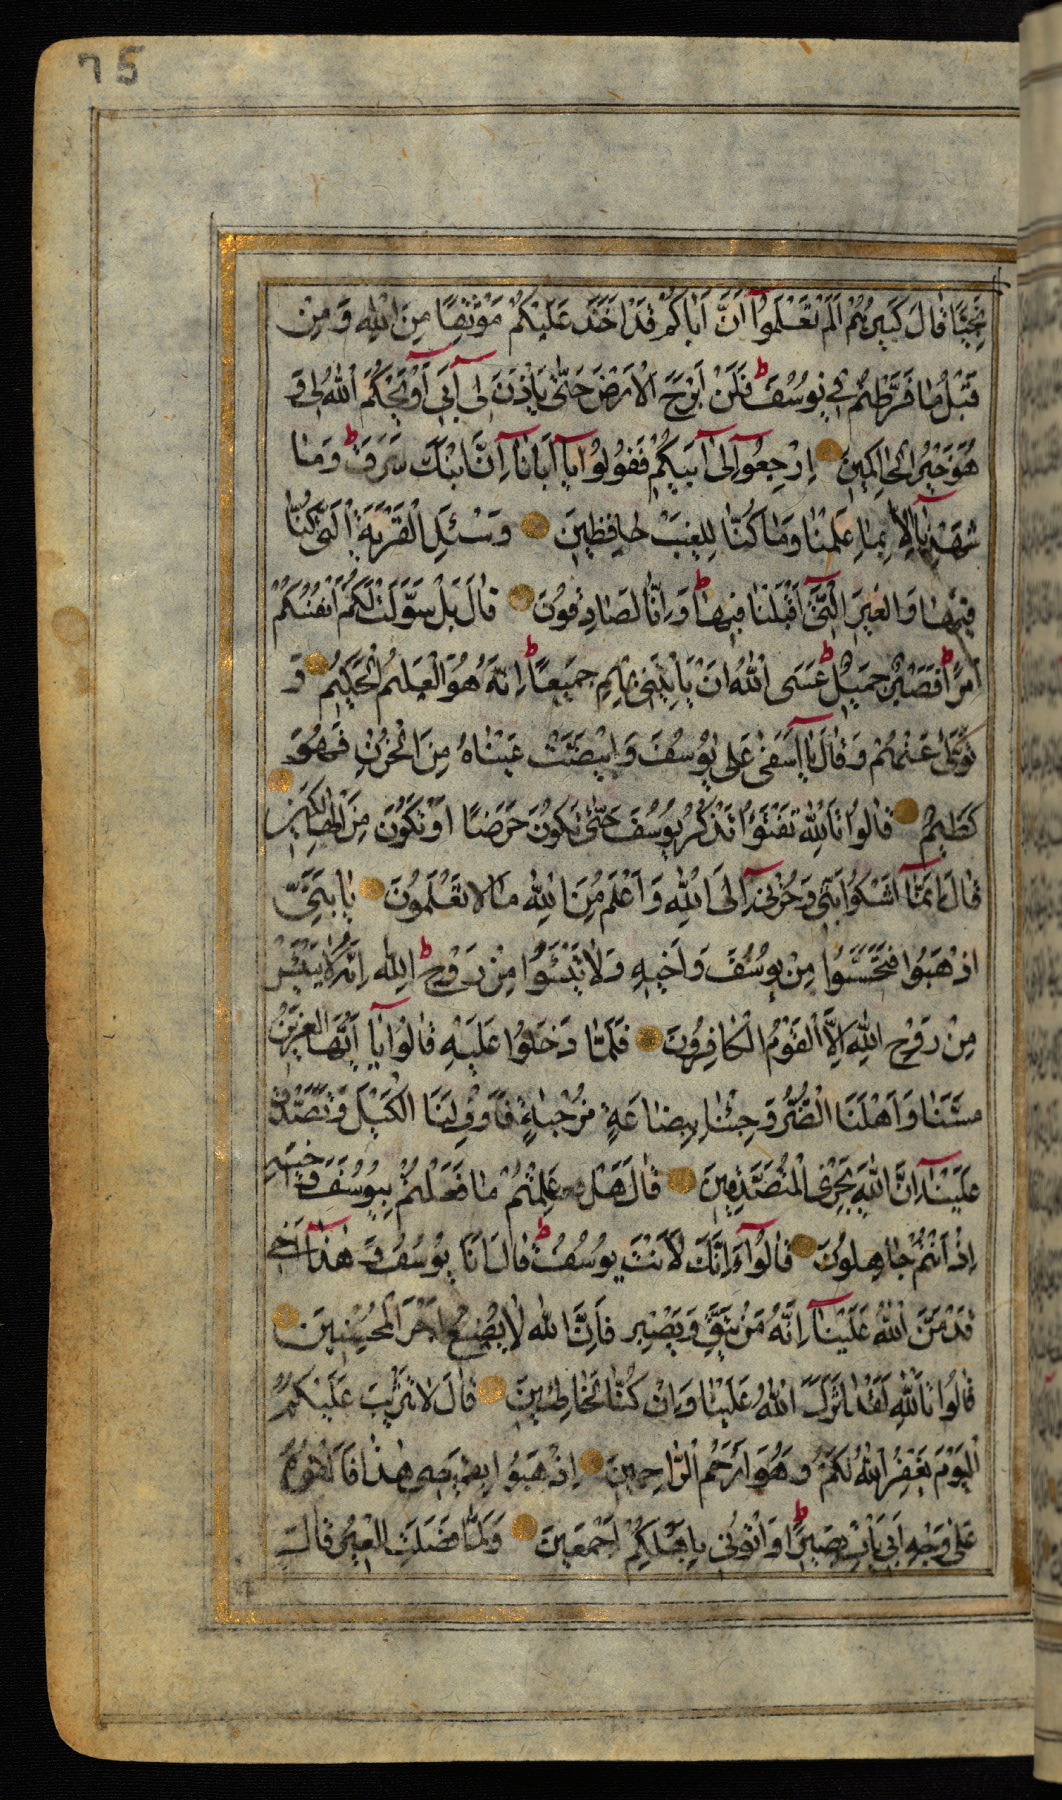 75
نَجِيًّا قَالَ كَبِيرُهُمْ اَلَمْ تَعْلَمُوٓا اَنَّ اَبَاكُمْ قَدْ اَخَذَ عَلَيْكُمْ مَوْثِقًا مِنَ اللّٰهِ وَ مِنْ
قَبْلُ مَا فَرَّطْتُمْ فِي يُوسُفَ ط فَلَنْ اَبْرَحَ الْاَرْضَ حَتّٰى يَاْذَنَ لِى اَبِىٓ اَوْ يَحْكُمَ اللّٰهُ لِى وَ
هُوَ خَيْرُ الْحَاكِمِينَ اِرْجِعُوٓا اِلٰىٓ اَبِيكُمْ فَقُولُوا يَآ اَبَانَآ اِنَّ ابْنَكَ سَرَقَ ط وَمَا
شَهِدْنَآ اِلَّا بِمَا عَلِمْنَا وَمَا كُنَّا لِلْغَيْبِ حَافِظِينَ وَسْئَلِ الْقَرْيَةَ الَّتِى كُنَّا
فِيهَا وَالْعِيرَ الَّتِىٓ اَقْبَلْنَا فِيهَا ط وَاِنَّا لَصَادِقُونَ قَالَ بَلْ سَوَّلَتْ لَكُمْ اَنْفُسُكُمْ
اَمْرًا ط فَصَبْرٌ جَمِيلٌ ط عَسَى اللّٰهُ اَنْ يَاْتِيَنِى بِهِمْ جَمِيعًا ط اِنَّهُ هُوَ الْعَلِيمُ الْحَكِيمُ وَ
تَوَلّٰى عَنْهُمْ وَقَالَ يَآ اَسَفٰى عَلٰى يُوسُفَ وَابْيَضَّتْ عَيْنَاهُ مِنَ الْحُزْنِ فَهُوَ
كَظِيمٌ قَالُوا تَاللّٰهِ تَفْتَؤُا تَذْكُرُ يُوسُفَ حَتّٰى تَكُونَ حَرَضًا اَوْ تَكُونَ مِنَ الْهَالِكِينَ
قَالَ اِنَّمَآ اَشْكُوا بَثِّى وَحُزْنِىٓ اِلَى اللّٰهِ وَاَعْلَمُ مِنَ اللّٰهِ مَا لَا تَعْلَمُونَ يَا بَنِىَّ
اذْهَبُوا فَتَحَسَّسُوا مِنْ يُوسُفَ وَاَخِيهِ وَلَا تَيْئَسُوا مِنْ رَوْحِ اللّٰهِ ط اِنَّهُ لَا يَيْئَسُ
مِنْ رَوْحِ اللّٰهِ اِلَّا الْقَوْمُ الْكَافِرُونَ فَلَمَّا دَخَلُوا عَلَيْهِ قَالُوا يَآ اَيُّهَا الْعَزِيزُ
مَسَّنَا وَاَهْلَنَا الضُّرُّ وَجِئْنَا بِبِضَاعَةٍ مُزْجٰيةٍ فَاَوْفِ لَنَا الْكَيْلَ وَتَصَدَّقْ
عَلَيْنَآ اِنَّ اللّٰهَ يَجْزِى الْمُتَصَدِّقِينَ قَالَ هَلْ عَلِمْتُمْ مَا فَعَلْتُمْ بِيُوسُفَ وَاَخِيهِ
اِذْ اَنْتُمْ جَاهِلُونَ قَالُوٓا ءَاِنَّكَ لَاَنْتَ يُوسُفُ ط قَالَ اَنَا يُوسُفُ وَ هٰذَآ اَخِى
قَدْ مَنَّ اللّٰهُ عَلَيْنَآ اِنَّهُ مَنْ يَتَّقِ وَيَصْبِرْ فَاِنَّ اللّٰهَ لَا يُضِيعُ اَجْرَ الْمُحْسِنِينَ
قَالُوا تَاللّٰهِ لَقَدْ اٰثَرَكَ اللّٰهُ عَلَيْنَا وَاِنْ كُنَّا لَخَاطِئِينَ قَالَ لَا تَثْرِيبَ عَلَيْكُمُ
الْيَوْمَ يَغْفِرُ اللّٰهُ لَكُمْ وَهُوَ اَرْحَمُ الرَّاحِمِينَ اِذْهَبُوا بِقَمِيصِى هٰذَا فَاَلْقُوهُ
عَلٰى وَجْهِ اَبِى يَاْتِ بَصِيرًا ط وَاْتُونِى بِاَهْلِكُمْ اَجْمَعِينَ وَلَمَّا فَصَلَتِ الْعِيرُ قَالَ